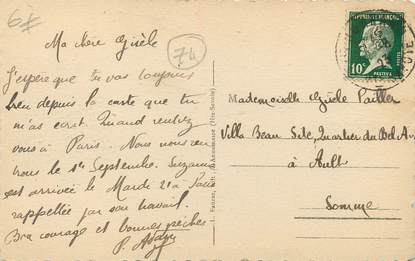 6f
74
Ma chère Gisèle
J'espère que tu vas toujours
bien depuis la carte que tu
m'as écrit. Quand rentrez
vous à Paris. Nous nous ren
trons le 1er Septembre. Suzanne
est arrivée le Mardi 21 à Paris
rappellée par son travail.
Bon courage et bonnes pêches
P.
REPUBLIQUE FRANÇAISE
10c
PASTEUR
POSTES
Mademoiselle Gisèle Pailler
Villa Beau Site, Quartier du Bel Air
à Ault
Somme
L. Fauraz, édit., (Hte-Savoie)